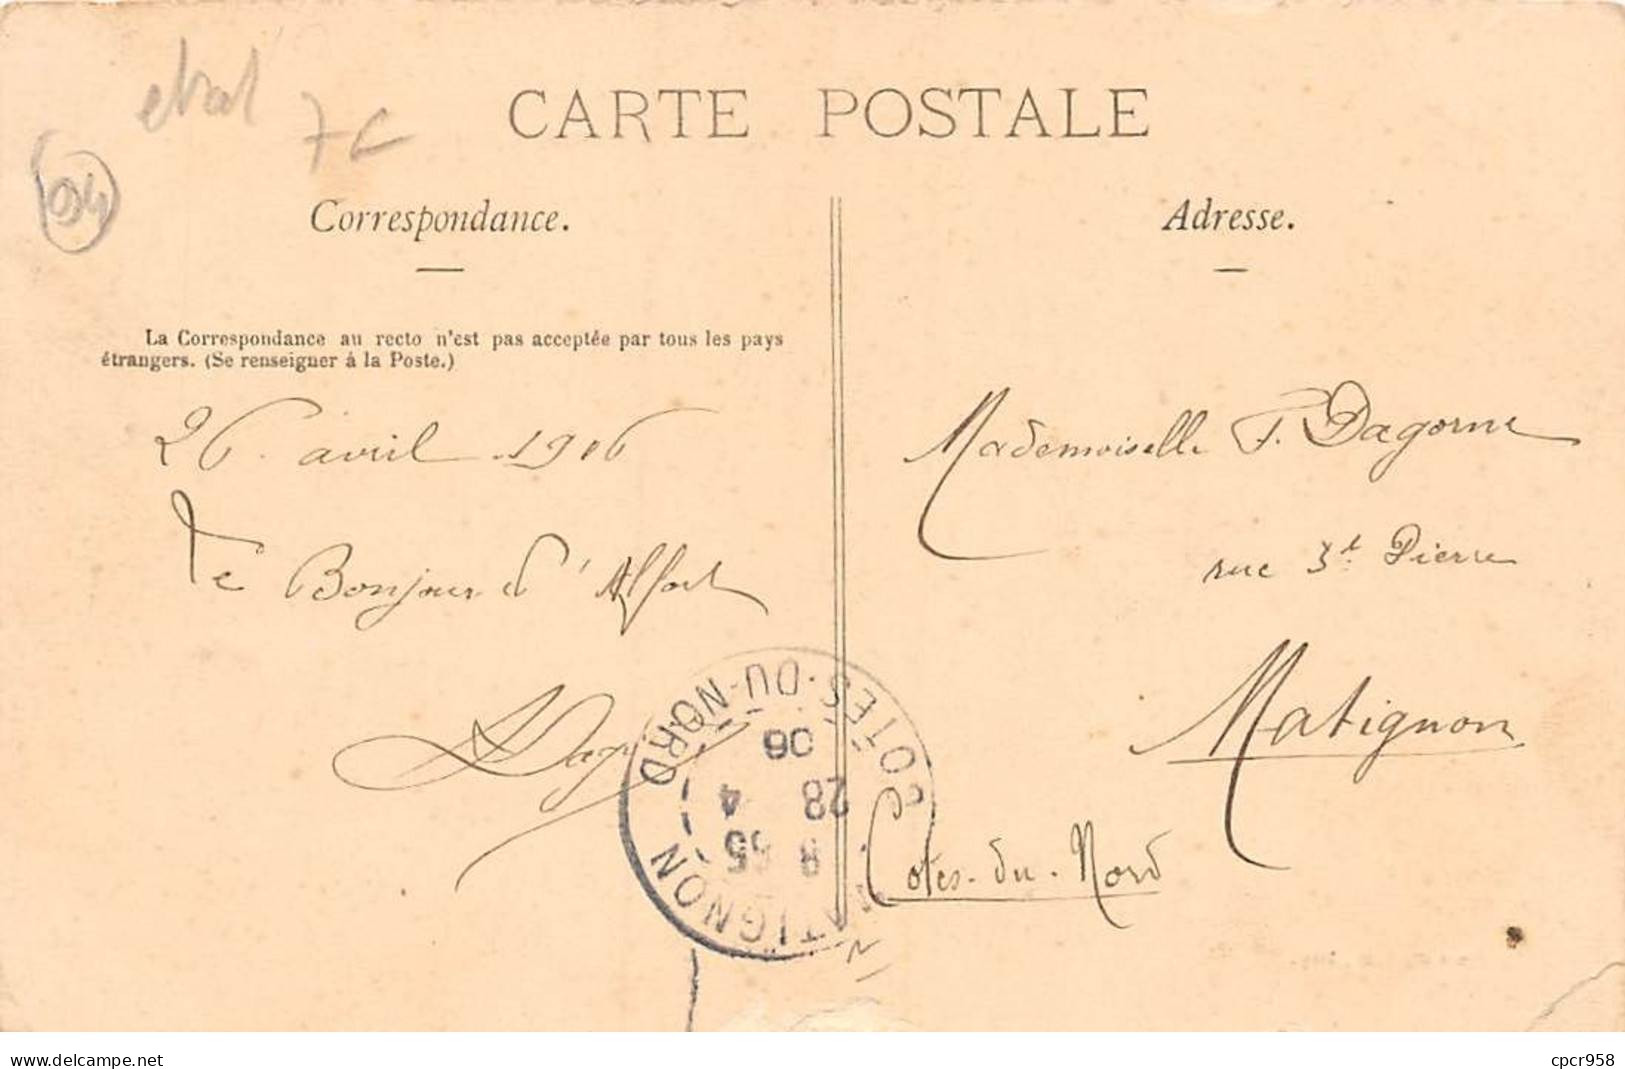 etat
7€
94
CARTE POSTALE
Correspondance.
Adresse.
La Correspondance au recto n'est pas acceptée par tous les pays
étrangers. (Se renseigner à la Poste.)
26 avril 1906
Bonjour d'Alfort
Mademoiselle F. Dagorne
rue St. Pierre
Matignon
Cotes-du-Nord
MATIGNON
COTES-DU-NORD
28 4
06
delcampe.net
cpcr958